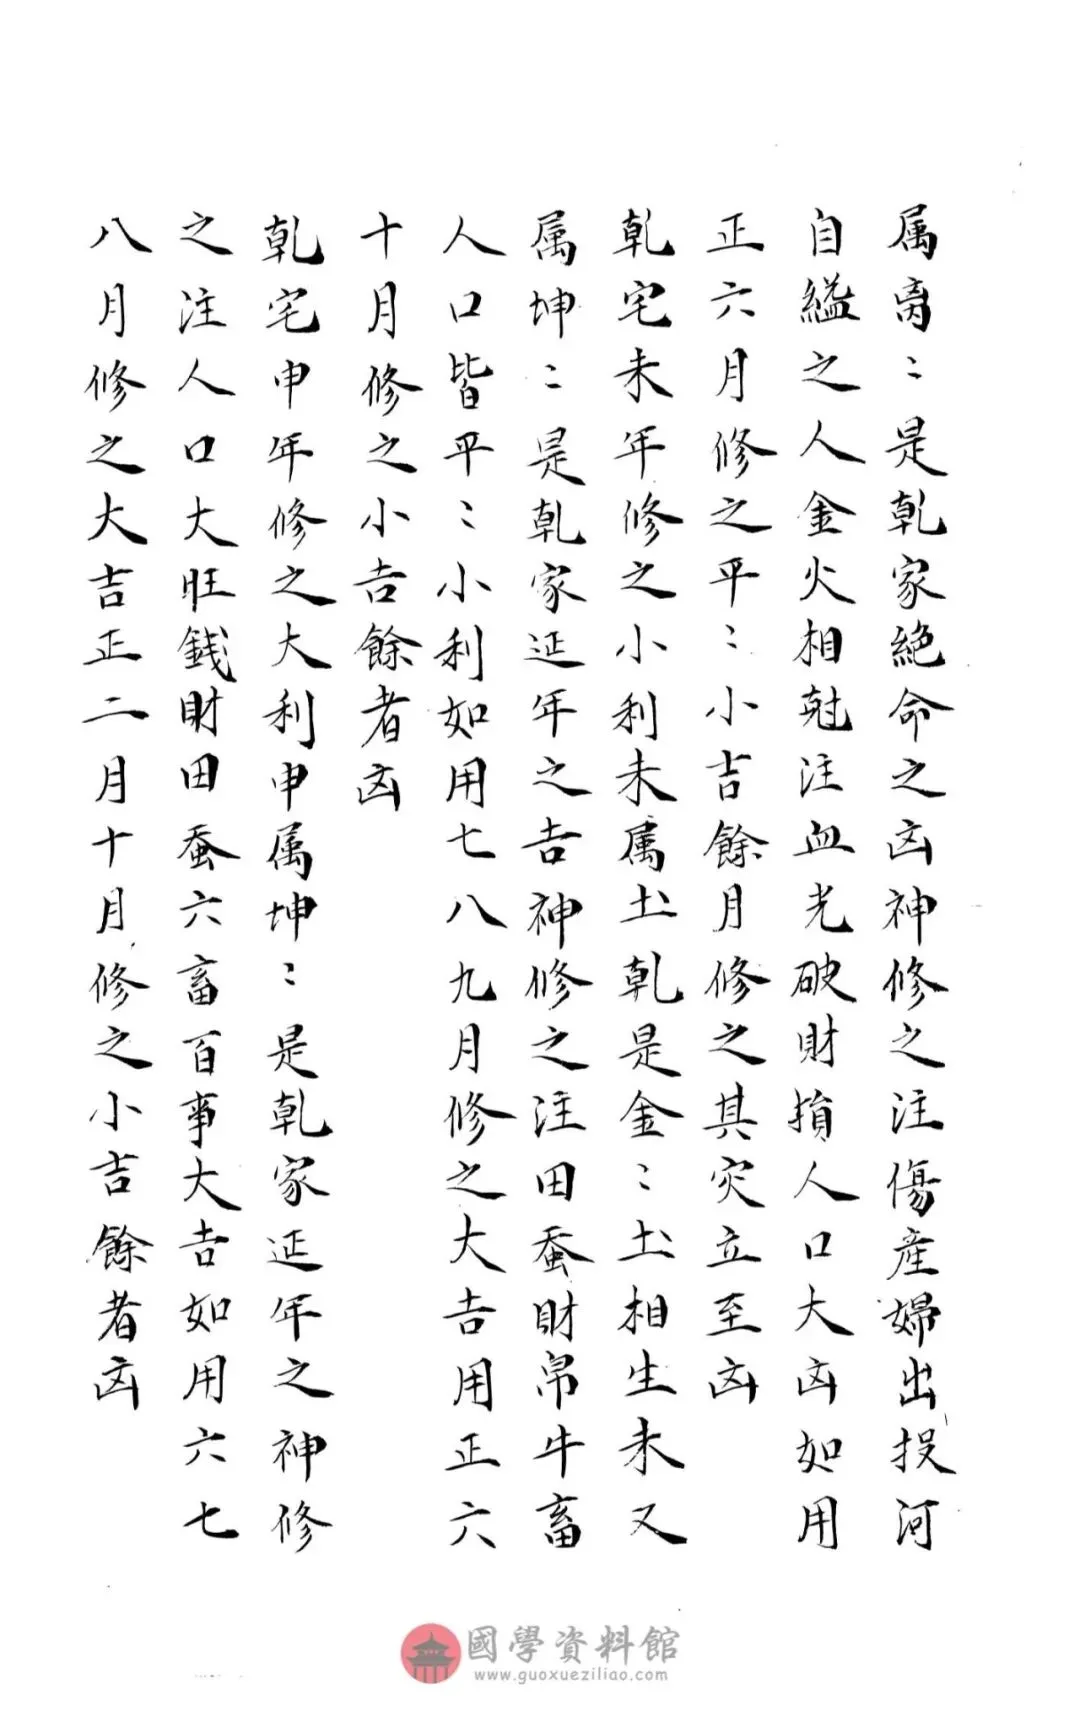 属离〻是乾家絶命之凶神修之注傷産婦出投河
自縊之人金火相尅注血光破財損人口大凶如用
正六月修之平〻小吉餘月修之其灾立至凶
乾宅未年修之小利未属土乾是金〻土相生未又
属坤〻是乾家延年之吉神修之注田蚕財帛牛畜
人口皆平〻小利如用七八九月修之大吉用正六
十月修之小吉餘者凶
乾宅申年修之大利申属坤〻是乾家延年之神修
之注人口大旺銭財田蚕六畜百事大吉如用六七
八月修之大吉正二月十月修之小吉餘者凶
國學資料館
www.guoxueziliao.com